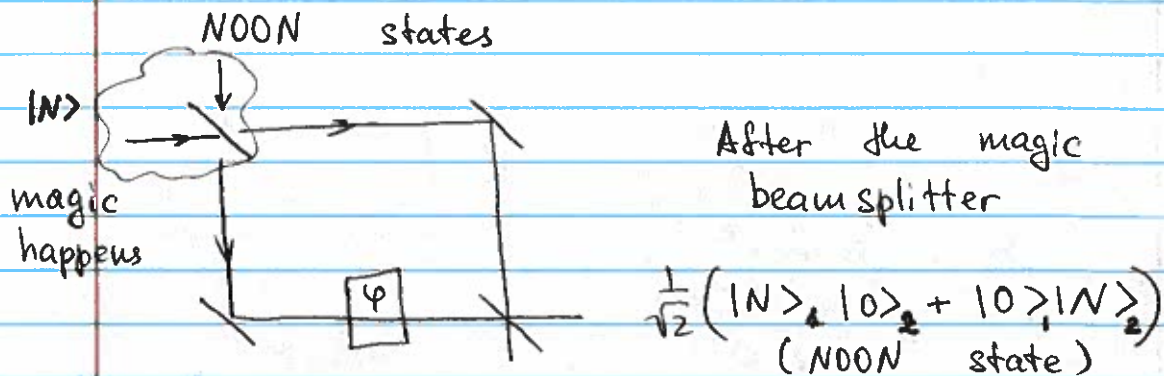 NOON states
|N>
magic
happens
φ
After the magic
beam splitter
1/√2 (|N>₁ |0>₂ + |0>₁|N>₂)
(NOON state)